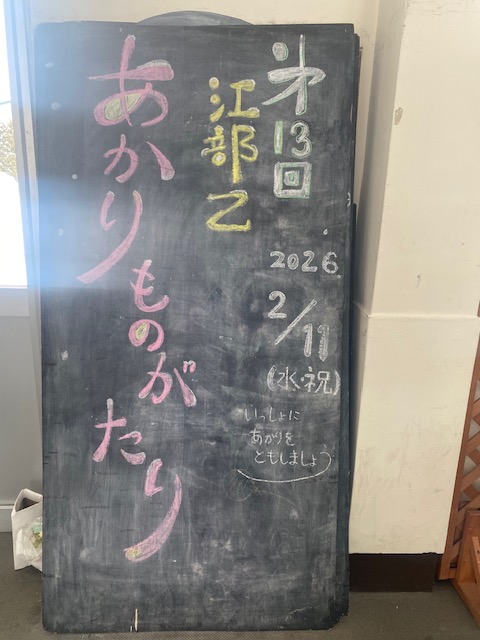 第13回
江部乙
あかりものがたり
2026
2/11
(水・祝)
いっしょに
あかりを
ともしましょう